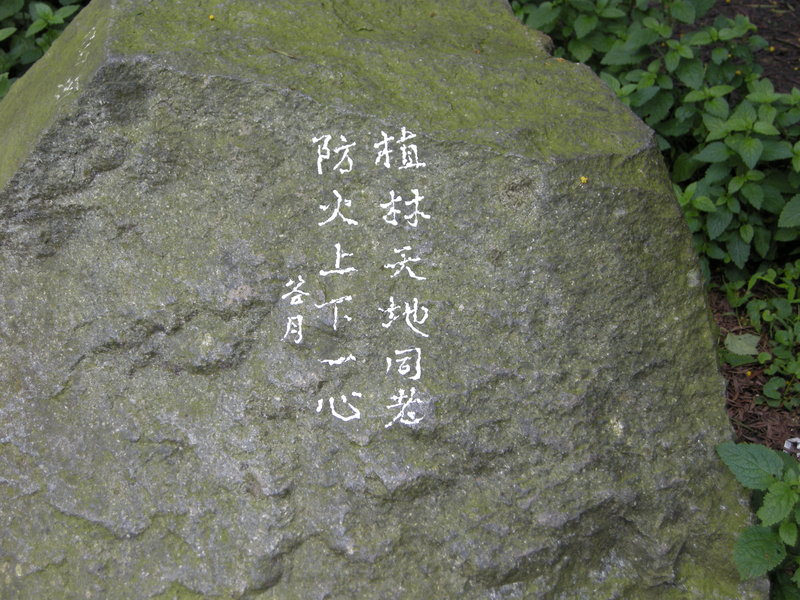 植林天地同老
防火上下一心